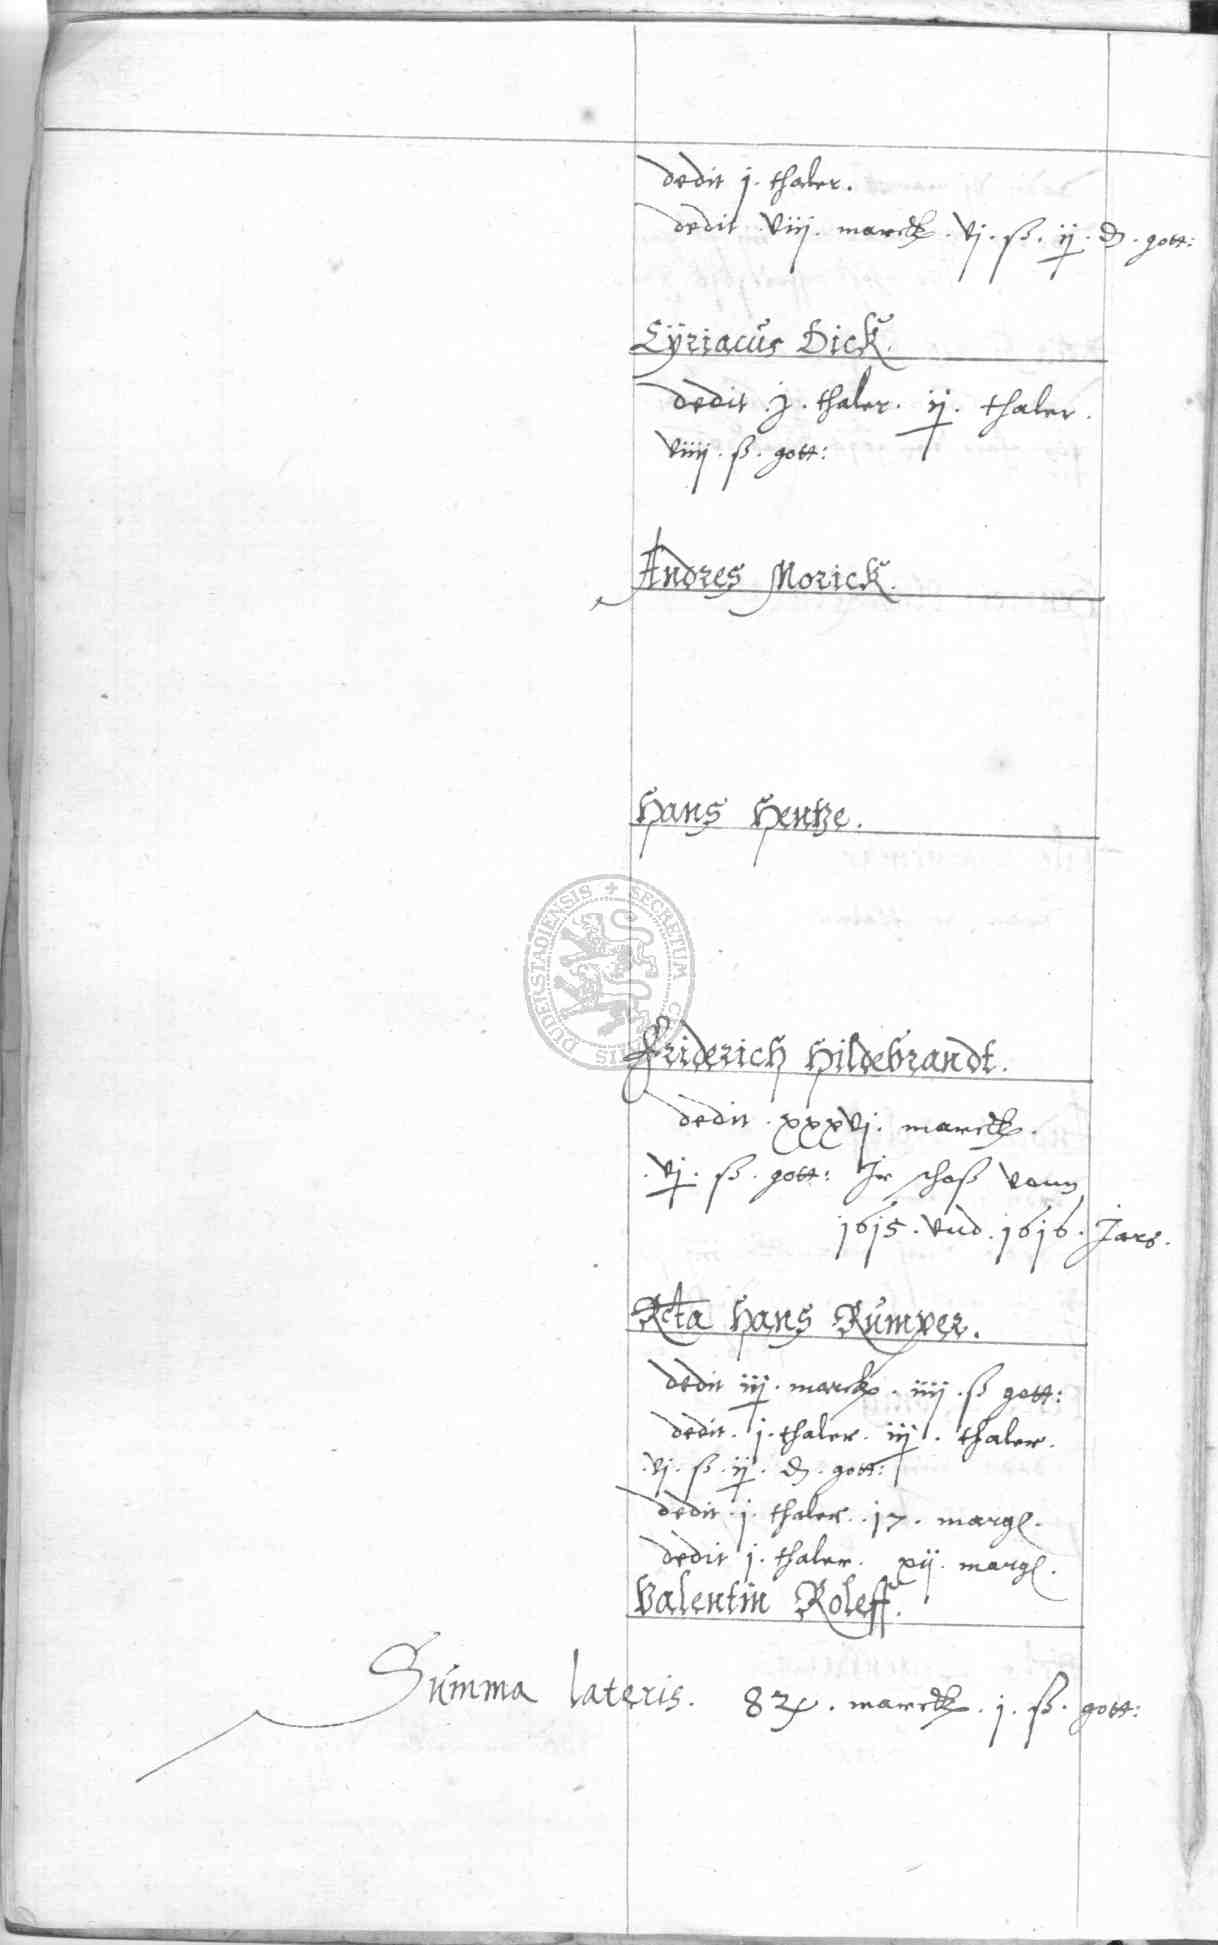 dedit j. thaler.
dedit . viij . marck . vj . ß . ij . d . gott:
Cÿriacus Dick.
dedit . j . thaler . ij . thaler .
viiij . ß . gott:
Andres Morick.
Hans Hentze.
SECRETUM CIVITATIS DUDERSTADIENSIS
Friderich Hildebrandt.
dedit . xxxvj . marck .
. vj . ß . gott: Ir schoß vonn
1615 . vnd . 1616 . Jars .
Rcta Hans Rümper.
dedit iij . marck . iiij . ß gott:
dedit . j . thaler . iij . thaler .
. vj . ß . ij . d . gott:
dedit . j . thaler . 17 . margl .
dedit j . thaler . xij . margl .
Valentin Roleff.
Summa lateris . marck . j . ß . gott: